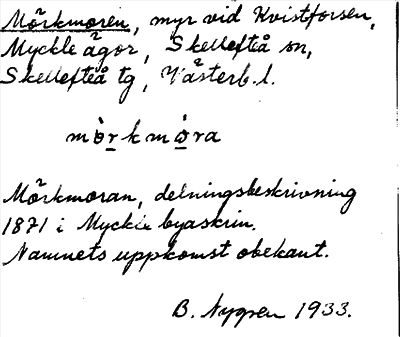 Mörkmoren, myr vid Kvistforsen,
Myckle ägor, Skellefteå sn,
Skellefteå tg, Västerb. l.
mò̱rkmó̱ra
Mörkmoran, delningsbeskrivning
1871 i Myckle byaskrin.
Namnets uppkomst obekant.
B. Nygren 1933.